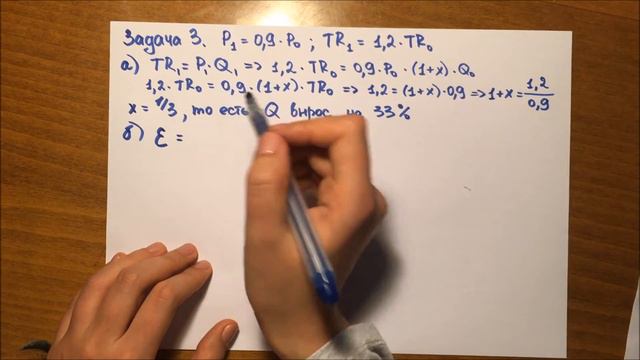 Задача 3. P₁ = 0,9·P₀ ; TR₁ = 1,2·TR₀
а) TR₁ = P₁·Q₁ => 1,2·TR₀ = 0,9·P₀·(1+x)·Q₀
1,2·TR₀ = 0,9·(1+x)·TR₀ => 1,2 = (1+x)·0,9 => 1+x = 1,2/0,9
x = 1/3, то есть Q вырос на 33%
б) Ɛ =